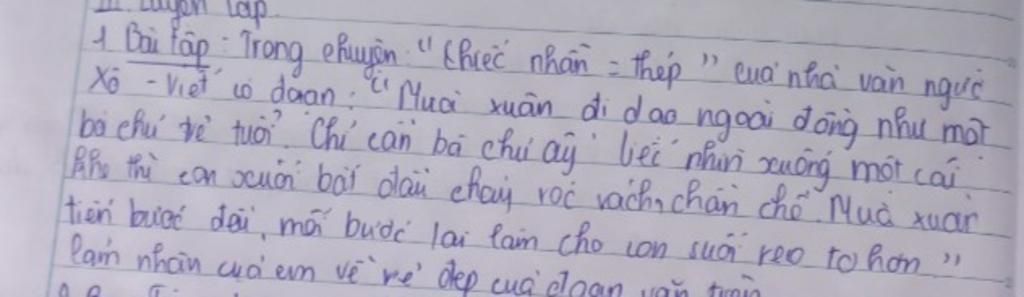 III Luyện tập
1 Bài tập : Trong chuyện : " Chiếc nhẫn = thép " cuả nhà văn người
Xô - Viết có đoạn : " Muà xuân đi dạo ngoài đồng như một
bà chủ trẻ tuổi. Chỉ cần bà chủ ấy liếc nhìn xuống một cái
khe thì con suối bắt đầu chảy róc rách, chàn chề. Muà xuân
tiến bước dài, mỗi bước lại làm cho con suối reo to hơn "
Cảm nhận cuả em về vẻ đẹp cuả đoạn văn trên